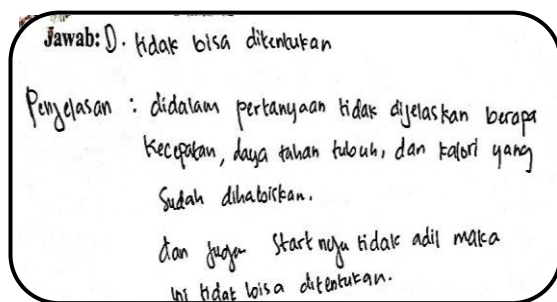 Jawab: D. tidak bisa ditentukan
Penjelasan : didalam pertanyaan tidak dijelaskan berapa
kecepatan, daya tahan tubuh, dan kalori yang
sudah dihabiskan.
dan juga startnya tidak adil maka
ini tidak bisa ditentukan.